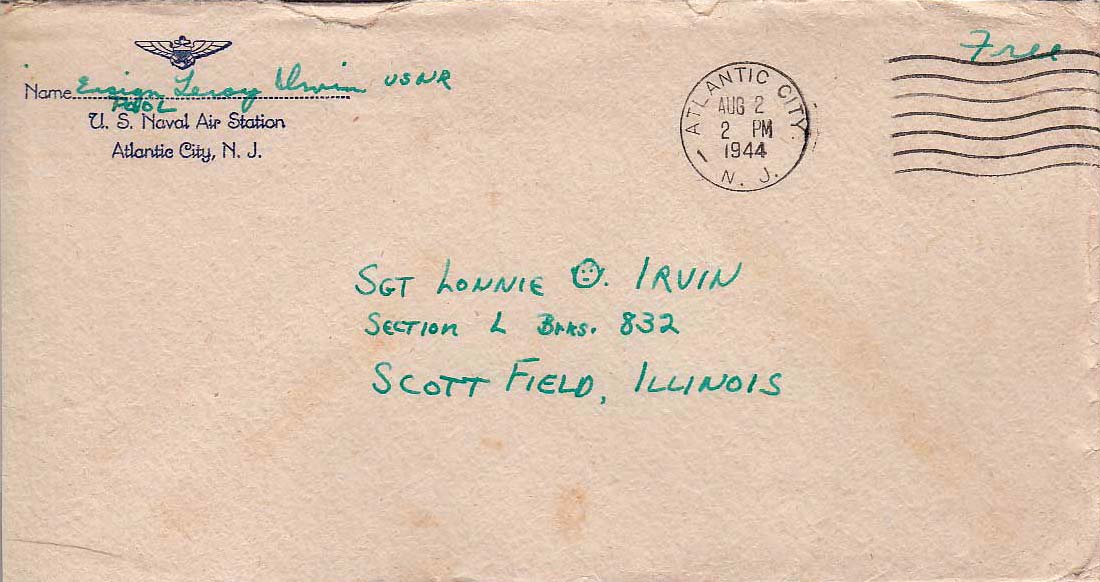 Name Ensign Leroy Irvin USNR
POOL
U. S. Naval Air Station
Atlantic City, N. J.
ATLANTIC CITY.
AUG 2
2 PM
1944
1 N. J.
Free
SGT LONNIE O. IRVIN
SECTION L BRKS. 832
SCOTT FIELD, ILLINOIS